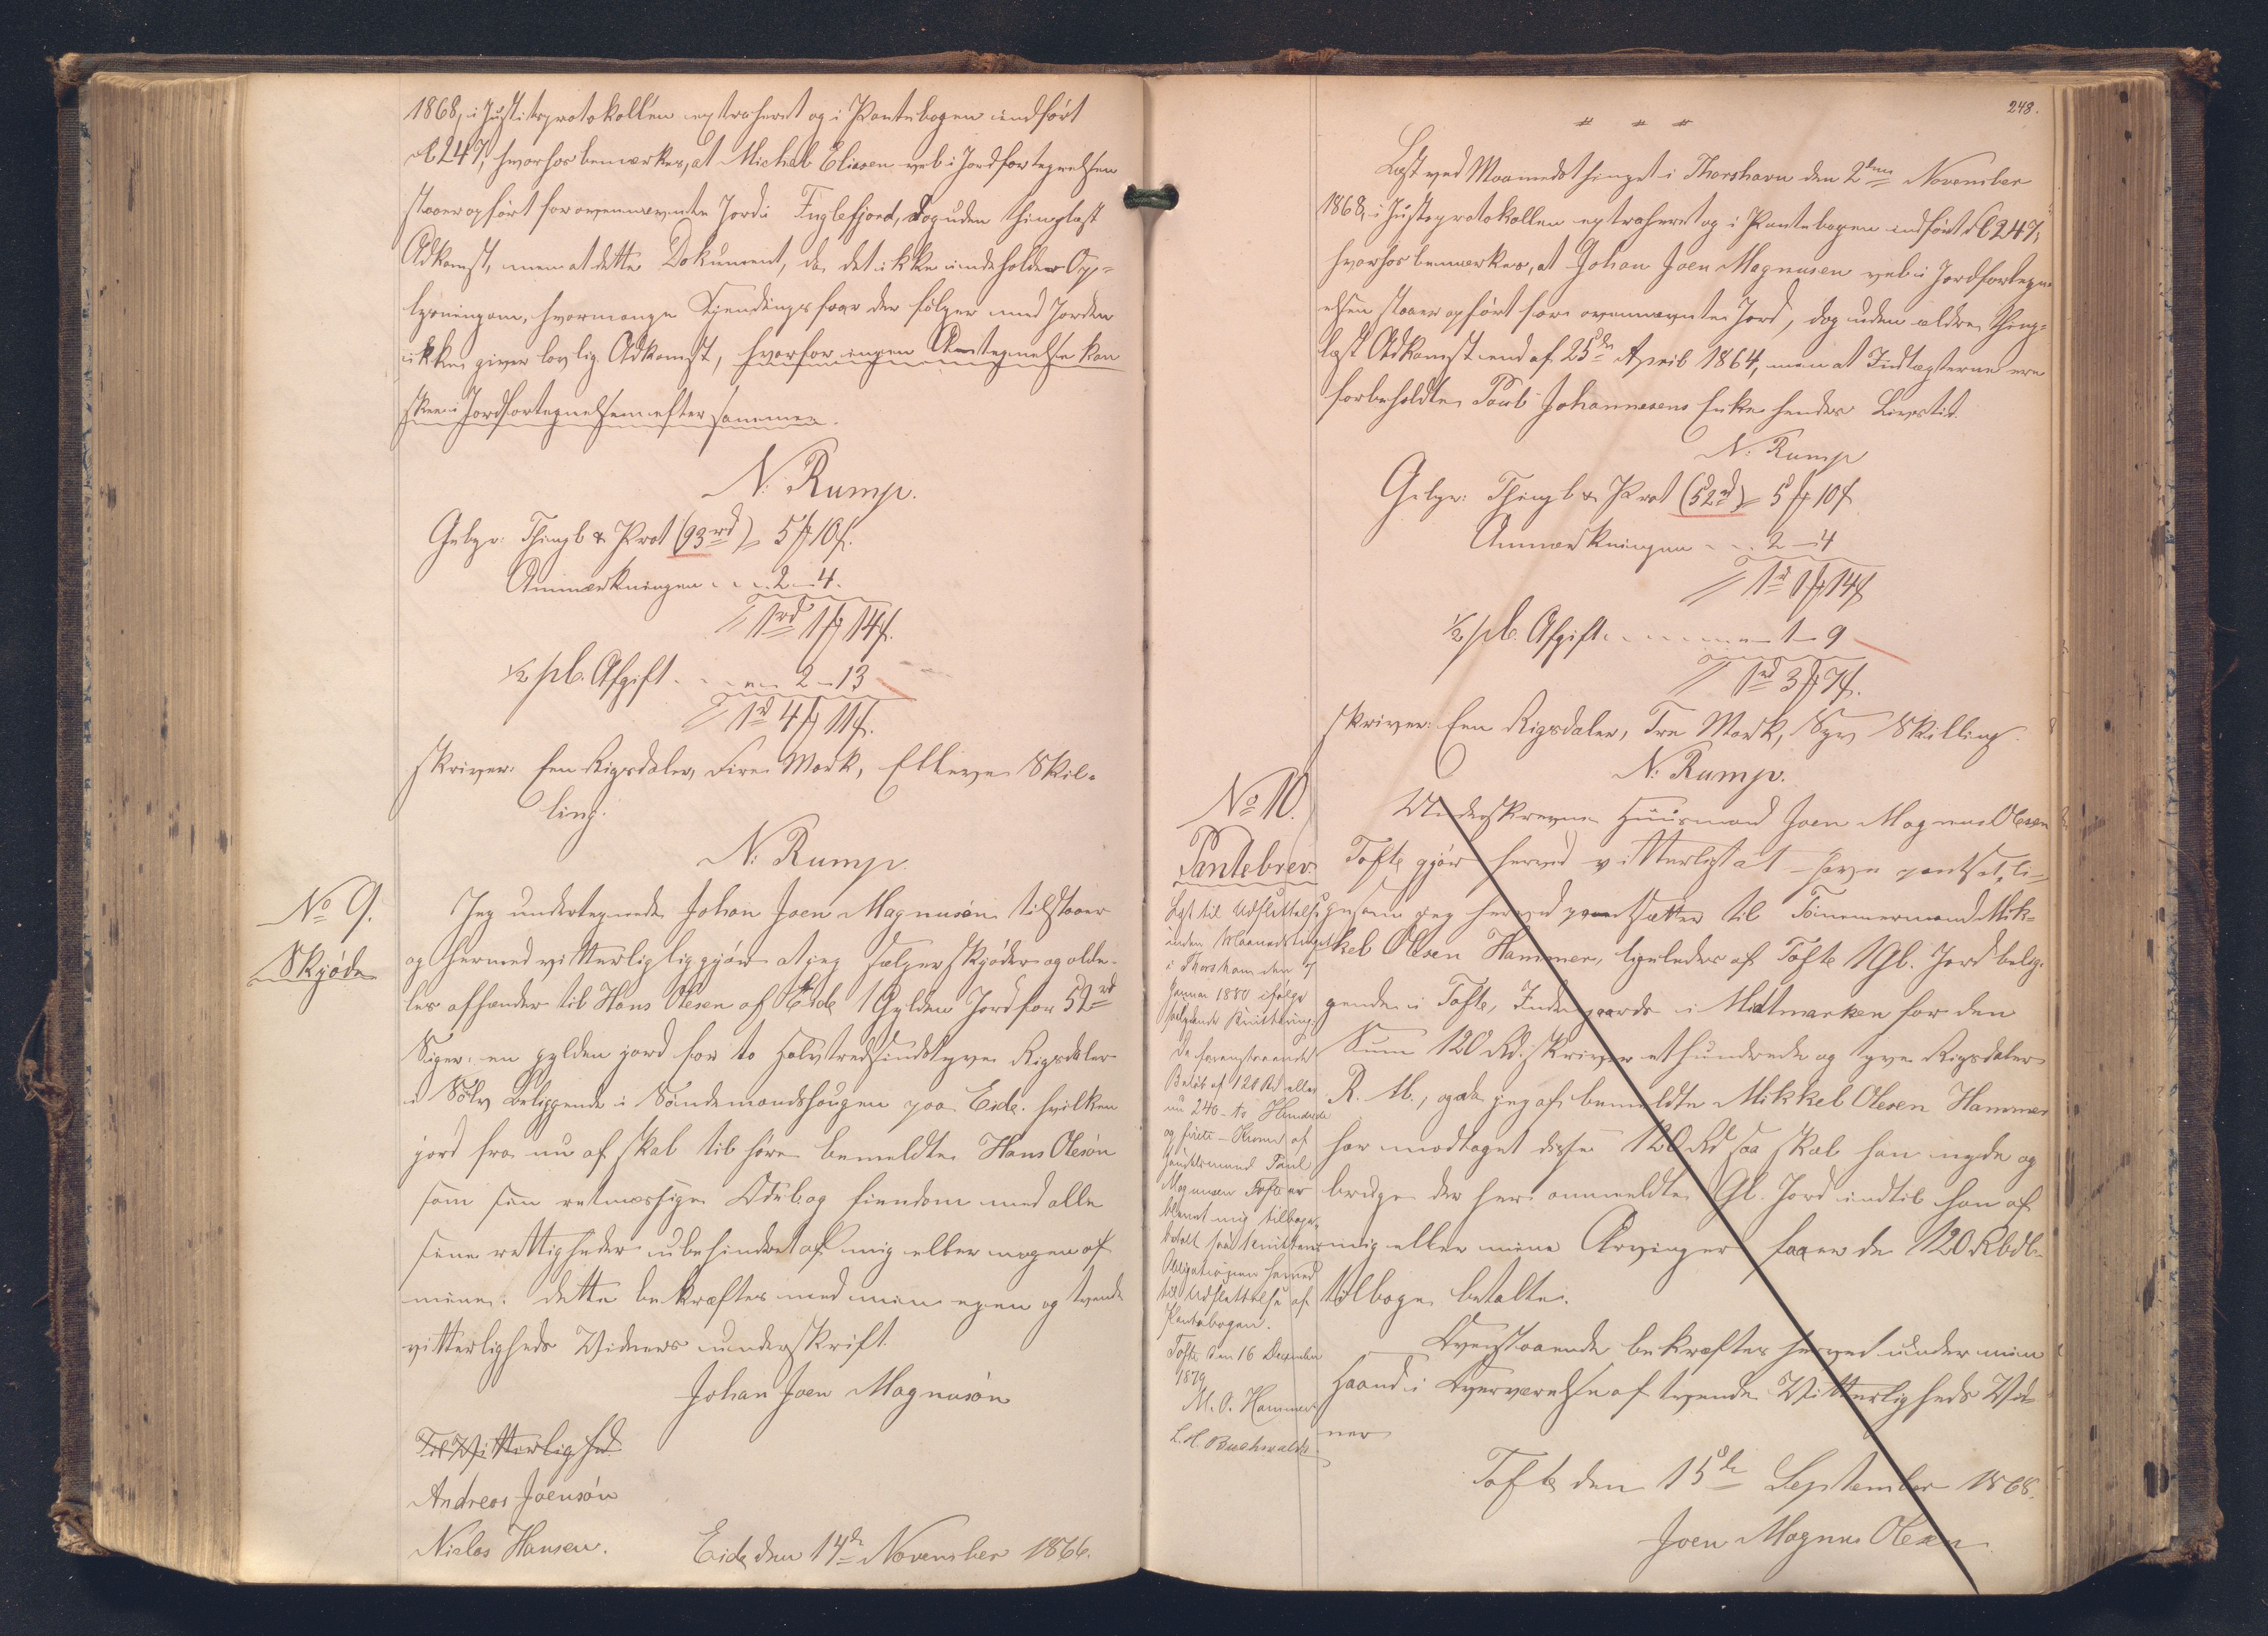 1868, i Justitsprotokollen extraheret og i Pantebogen indført
Fol 247, hvorhos bemærkes, at Michel Eliasen vel i Jordfortegnelsen
staaer opført for ovennævnte Jord i Fuglefjord, dog uden thinglæst
Adkomst, men at dette Dokument, da det ikke indeholder Op-
lysning om, hvormange Kjendingsfaar der følger med Jorden
ikke giver lovlig Adkomst, hvorfor ingen Antegnelse kan
skee i Jordfortegnelsen efter samme.
N. Rump.
Gebyr: Thingl & Prot (93 rd) 5 ƒ 10 s.
Anmærkningen . . . 2 – 4.
1 rd 1 ƒ 14 s.
½ pCt. Afgift . . . 2 – 13
1 rd 4 ƒ 11 s.
skriver: Een Rigsdaler, Fire Mark, Elleve Skil-
ling.
N. Rump.
No 9.
Skjøde
Jeg undertegnede Johan Joen Magnusón tilstaaer
og hermed vitterlig liggjør at jeg sælger skjøder og alde-
les afhænder til Hans Olesen af Eide 1 Gylden Jord for 52 rd
Siger: en gylden jord for to halvtredsindstyve Rigsdaler
i Sølv beliggende i Søndemandshougen paa Eide. hvilken
jord fra nu af skal til høre bemeldte Hans Olesón
som sin retmæssige Odel og Eiendom med alle
sine rettigheder ubehindret af mig eller nogen af
mine. dette bekræftes med min egen og tvende
vitterligheds Vidners underskrift.
Johan Joen Magnusón
Til Vitterlighed
Andreas Joensón
Niclas Hansen. Eide den 14de November 1866.
248.
Læst ved Maanedsthinget i Thorshavn den 2den November
1868, i Justsprotokollen extraheret og i Pantebogen indført Fol 247,
hvorhos bemærkes, at Johan Joen Magnusen vel i Jordfortegn-
elsen staaer opført for ovennævnte Jord, dog uden ældre thing-
læst Adkomst end af 25de April 1864, men at Indtægterne ere
forbeholdte Poul Johannesens Enke hendes Livstid.
N. Rump
Gebyr: Thingl & Prot (52 rd) 5 ƒ 10 s
Anmærkningen . . . 2 – 4
1 rd 1 ƒ 14 s
½ pCt. Afgift . . . 1 – 9
1 rd 3 ƒ 7 s.
skriver: Een Rigsdaler, Tre Mark, Syv Skilling.
N. Rump.
No 10.
Pantebrev.
Læst til Udslettelse
inden Maanedstinget
i Thorshavn den 7
Januar 1880 ifølge
følgende Kvittering:
De foranstaaende
Beløb af 120 Rd eller
nu 240 – to Hundrede
og firti – Kroner af
Huusmand Paul
Magnusen Tofte er
blevet mig tilbage-
betalt som kvitteres
Obligationen herved
til Udslettelse af
Pantebogen.
Tofte den 16 December
1879
M. O. Hammer
L. H. Buchwaldt.
Underskrevne Huusmand Joen Magnus Olesen
Tofte gjør herved vitterligt at have pantsat, li-
gesom jeg herved pantsætter til Tømmermand Mik-
kel Olesen Hammer, ligeledes af Tofte 1 Gl. Jord belig-
gende i Tofte, Indengaards i Midtmarken for den
Sum 120 Rd. skriver et hundrede og tyve Rigsdaler
R. M., og da jeg af bemeldte Mikkel Olesen Hammer
har modtaget disse 120 Rd saa skal han nyde og
bruge der her anmeldte Gl. Jord indtil han af
mig eller mine Arvinger faaer de 120 Rbdl.
tilbage betalte.
Ovenstaaende bekræftes herved under min
Haand i Overværelse af tvende Vitterligheds Vid-
ner
Tofte den 15de September 1868.
Joen Magnus Olesen